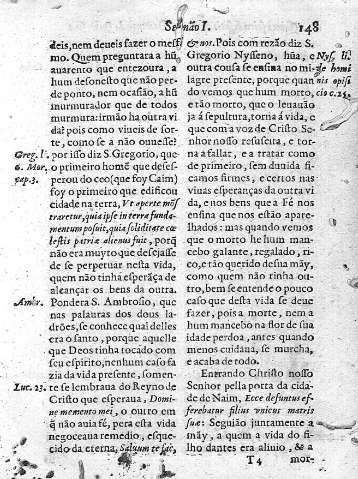 Sermão I. 148
deis, nem deueis fazer o mes-
mo. Quem preguntara a hũ
auarento que entezoura, a
hum desonesto que não per-
de ponto, nem ocasião, a hũ
murmurador que de todos
murmura: irmão ha outra vi-
da? pois como viueis de sor-
te, como se a não ouuesse?
por isso diz S. Gregorio, que
o primeiro homẽ que deses-
perou do ceo (que foy Caim)
foy o primeiro que edificou
cidade na terra, Vt aperte mõs
traretur, quia ipse in terra funda-
mentum posuit, qui a soliditate cœ-
lestis patriæ alienus fuit, porq̃
não era muyto que desejasse
de se perpetuar nesta vida,
quem não tinha esperãça de
alcançar os bens da outra.
Pondera S. Ambrosio, que
nas palauras dos dous la-
drões, se conhece qual delles
era o santo, porque aquelle
que Deos tinha tocado com
seu espirito, nenhum caso fa-
zia da vida presente, somen-
te se lembraua do Reyno de
Cristo que esperaua, Domi-
ne memento mei, o outro em
q̃ não auia fé, pera esta vida
negoceaua remedio, esque-
cido da eterna, Saluum te fac,
Greg. l.
6. Mor.
cap. 3.
Ambr.
Luc. 23.
& nos. Pois com rezão diz S.
Gregorio Nysseno, hũa, e
outra cousa se ensina no mi-
lagre presente, porque quan
do vemos que hum morto,
e tão morto, que o leuauão
já á sepultura, torna á vida, e
que com a voz de Cristo Se-
nhor nosso resuscita, e tor-
na a fallar, e a tratar como
de primeiro, sem duuida fi-
camos firmes, e certos nas
viuas esperanças da outra vi
da, e nos bens que a Fé nos
ensina que nos estão apare-
lhados: mas quando vemos
que o morto he hum man-
cebo galante, regalado, ri-
co, e tão querido de sua mãy,
como quem não tinha ou-
tro, bem se entende o pouco
caso que desta vida se deue
fazer, pois a morte, nem a
hum mancebo na flor de sua
idade perdoa, antes quando
menos cuidaua, se murcha,
e acaba de todo.
Entrando Christo nosso
Senhor pella porta da cida-
de de Naim, Ecce defuntus ef-
ferebatur filius vnicus matris
suæ: Seguião juntamente a
mãy, a quem a vida do fi-
lho dantes era aliuio, & a
Nyss. li.
de homi
nis opifi
cio c. 25.
T 4 mor-